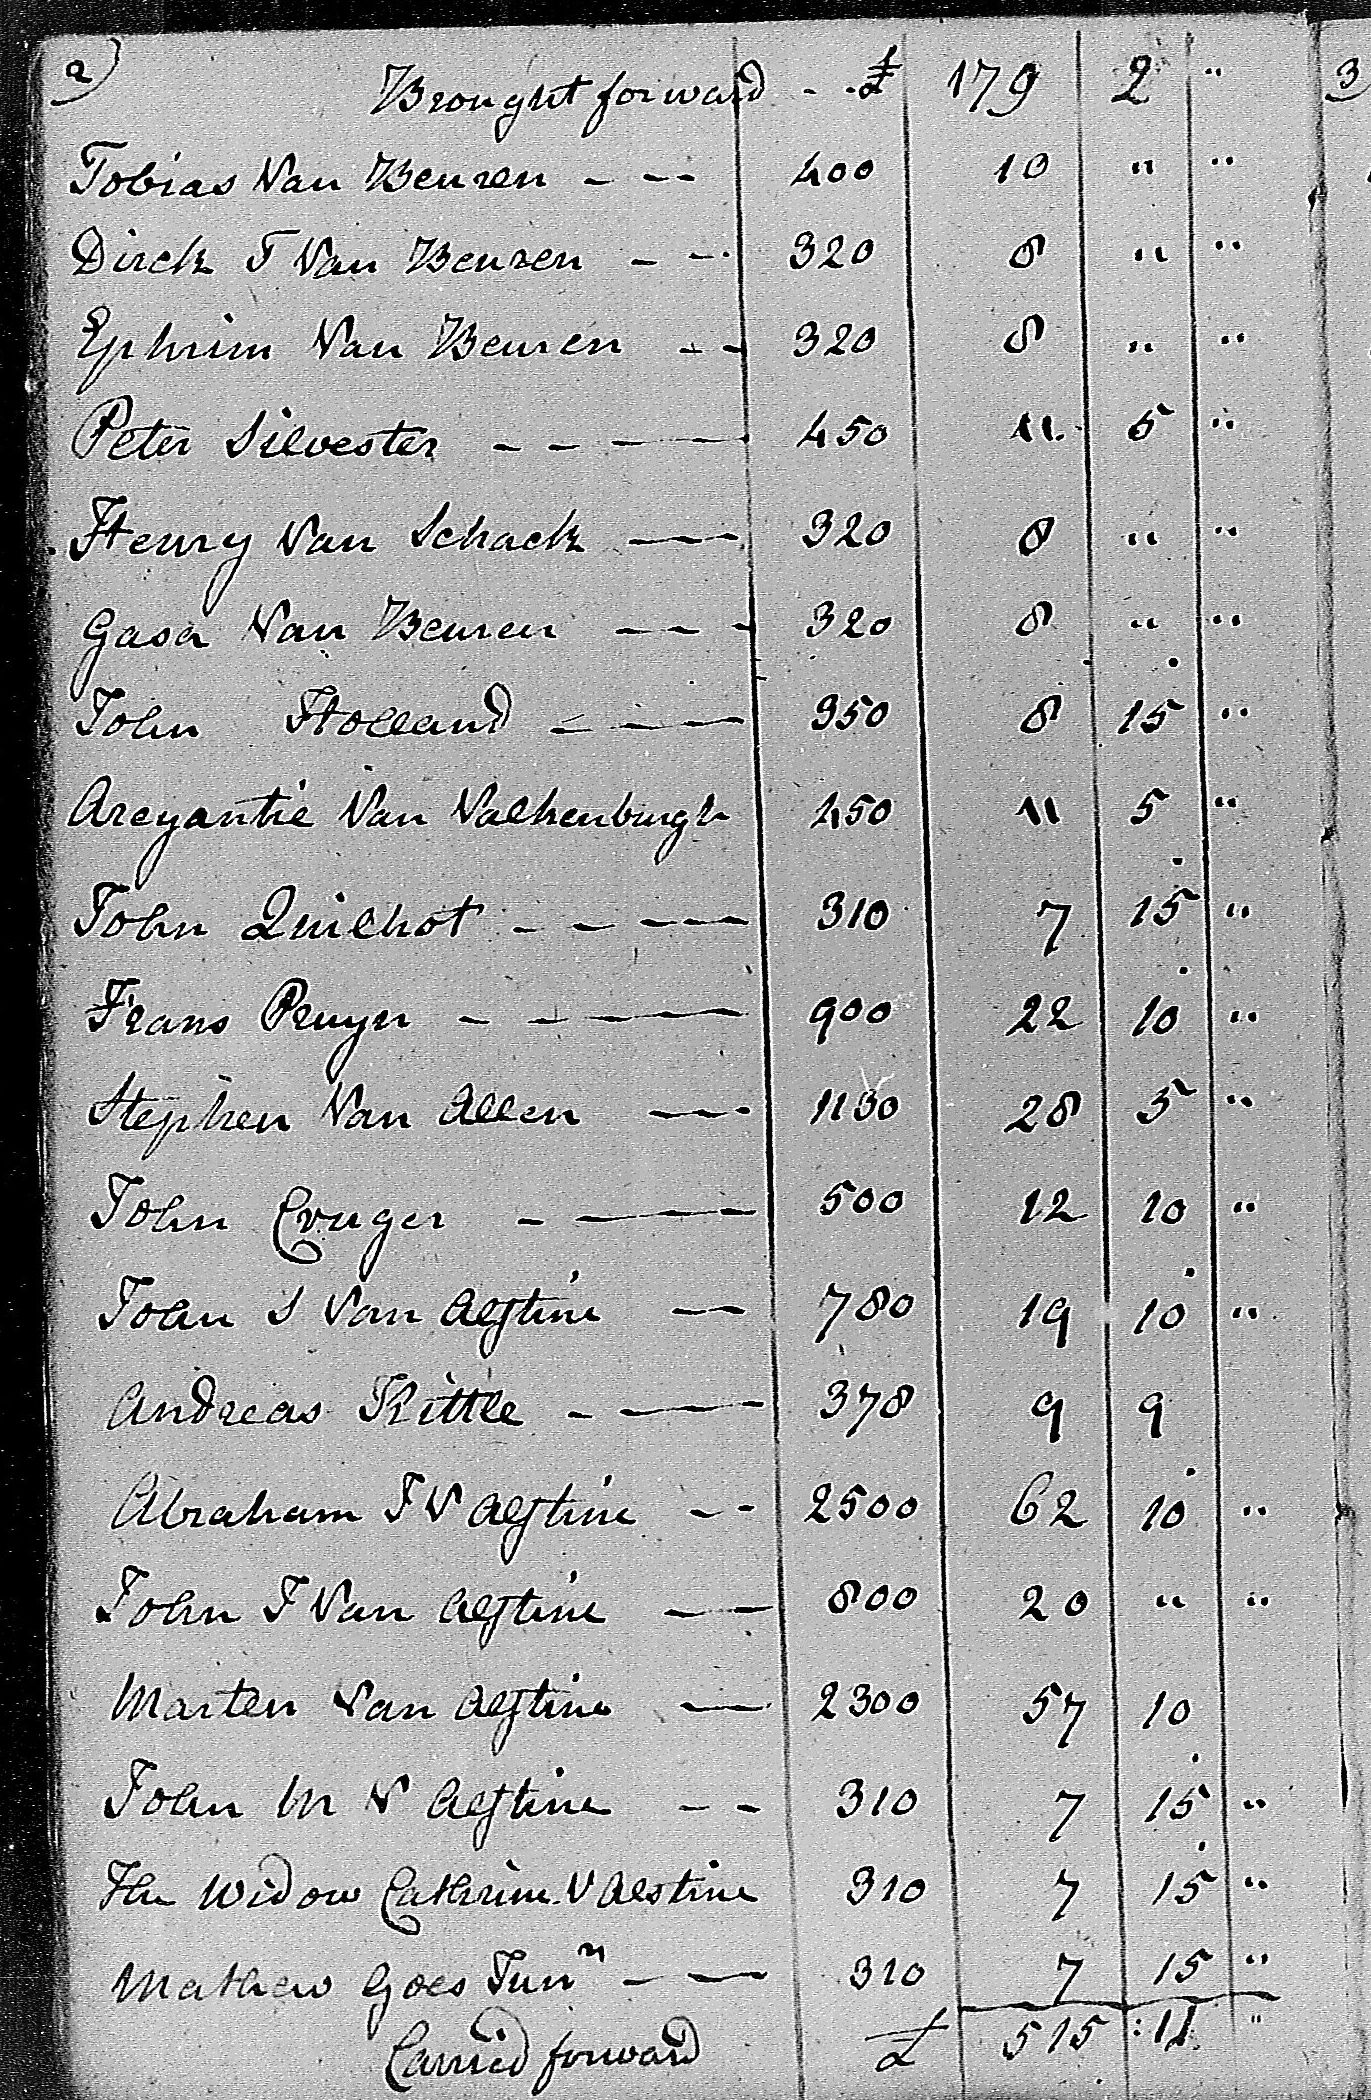 2)
Brought forward - - £ 179 2 "
Tobias Van Beuren - - - 400 10 " "
Dirck T Van Beuren - - - 320 8 " "
Ephrim Van Beuren - - 320 8 " "
Peter Silvester - - - - 450 11 5 "
Henry Van Schack - - 320 8 " "
Gasa Van Beuren - - - 320 8 " "
John Holland - - - 350 8 15 "
Areyantie Van Valkenburgh 450 11 5 "
John Quilhot - - - - 310 7 15 "
Frans Pruyn - - - - 900 22 10 "
Stephen Van Allen - - 1130 28 5 "
John Cruger - - - 500 12 10 "
John S Van Alstine - - 780 19 10 "
Andreas Kittle - - - 378 9 9
Abraham J V Alstine - - 2500 62 10 "
John J Van Alstine - - 800 20 " "
Marten Van Alstine - - 2300 57 10
John M V Alstine - - 310 7 15 "
The Widow Cathrine V Alstine 310 7 15 "
Mathew Goes Junr - - 310 7 15 "
Carried forward £ 515 : 11 "
3)